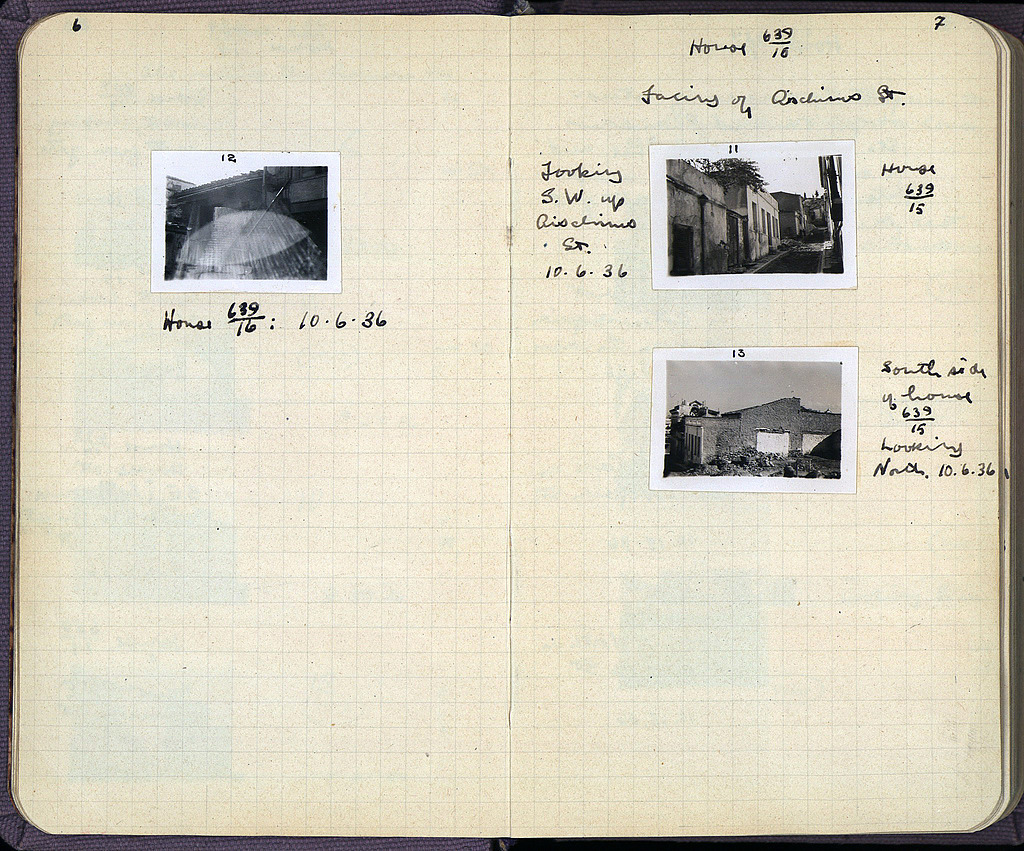 6
12
House 639/16 : 10.6.36
7
House 639/16
Facing of Aischines St.
11
Looking
S.W. up
Aischines
St.
10.6.36
House
639/15
13
South side
of house
639/15
Looking
North. 10.6.36